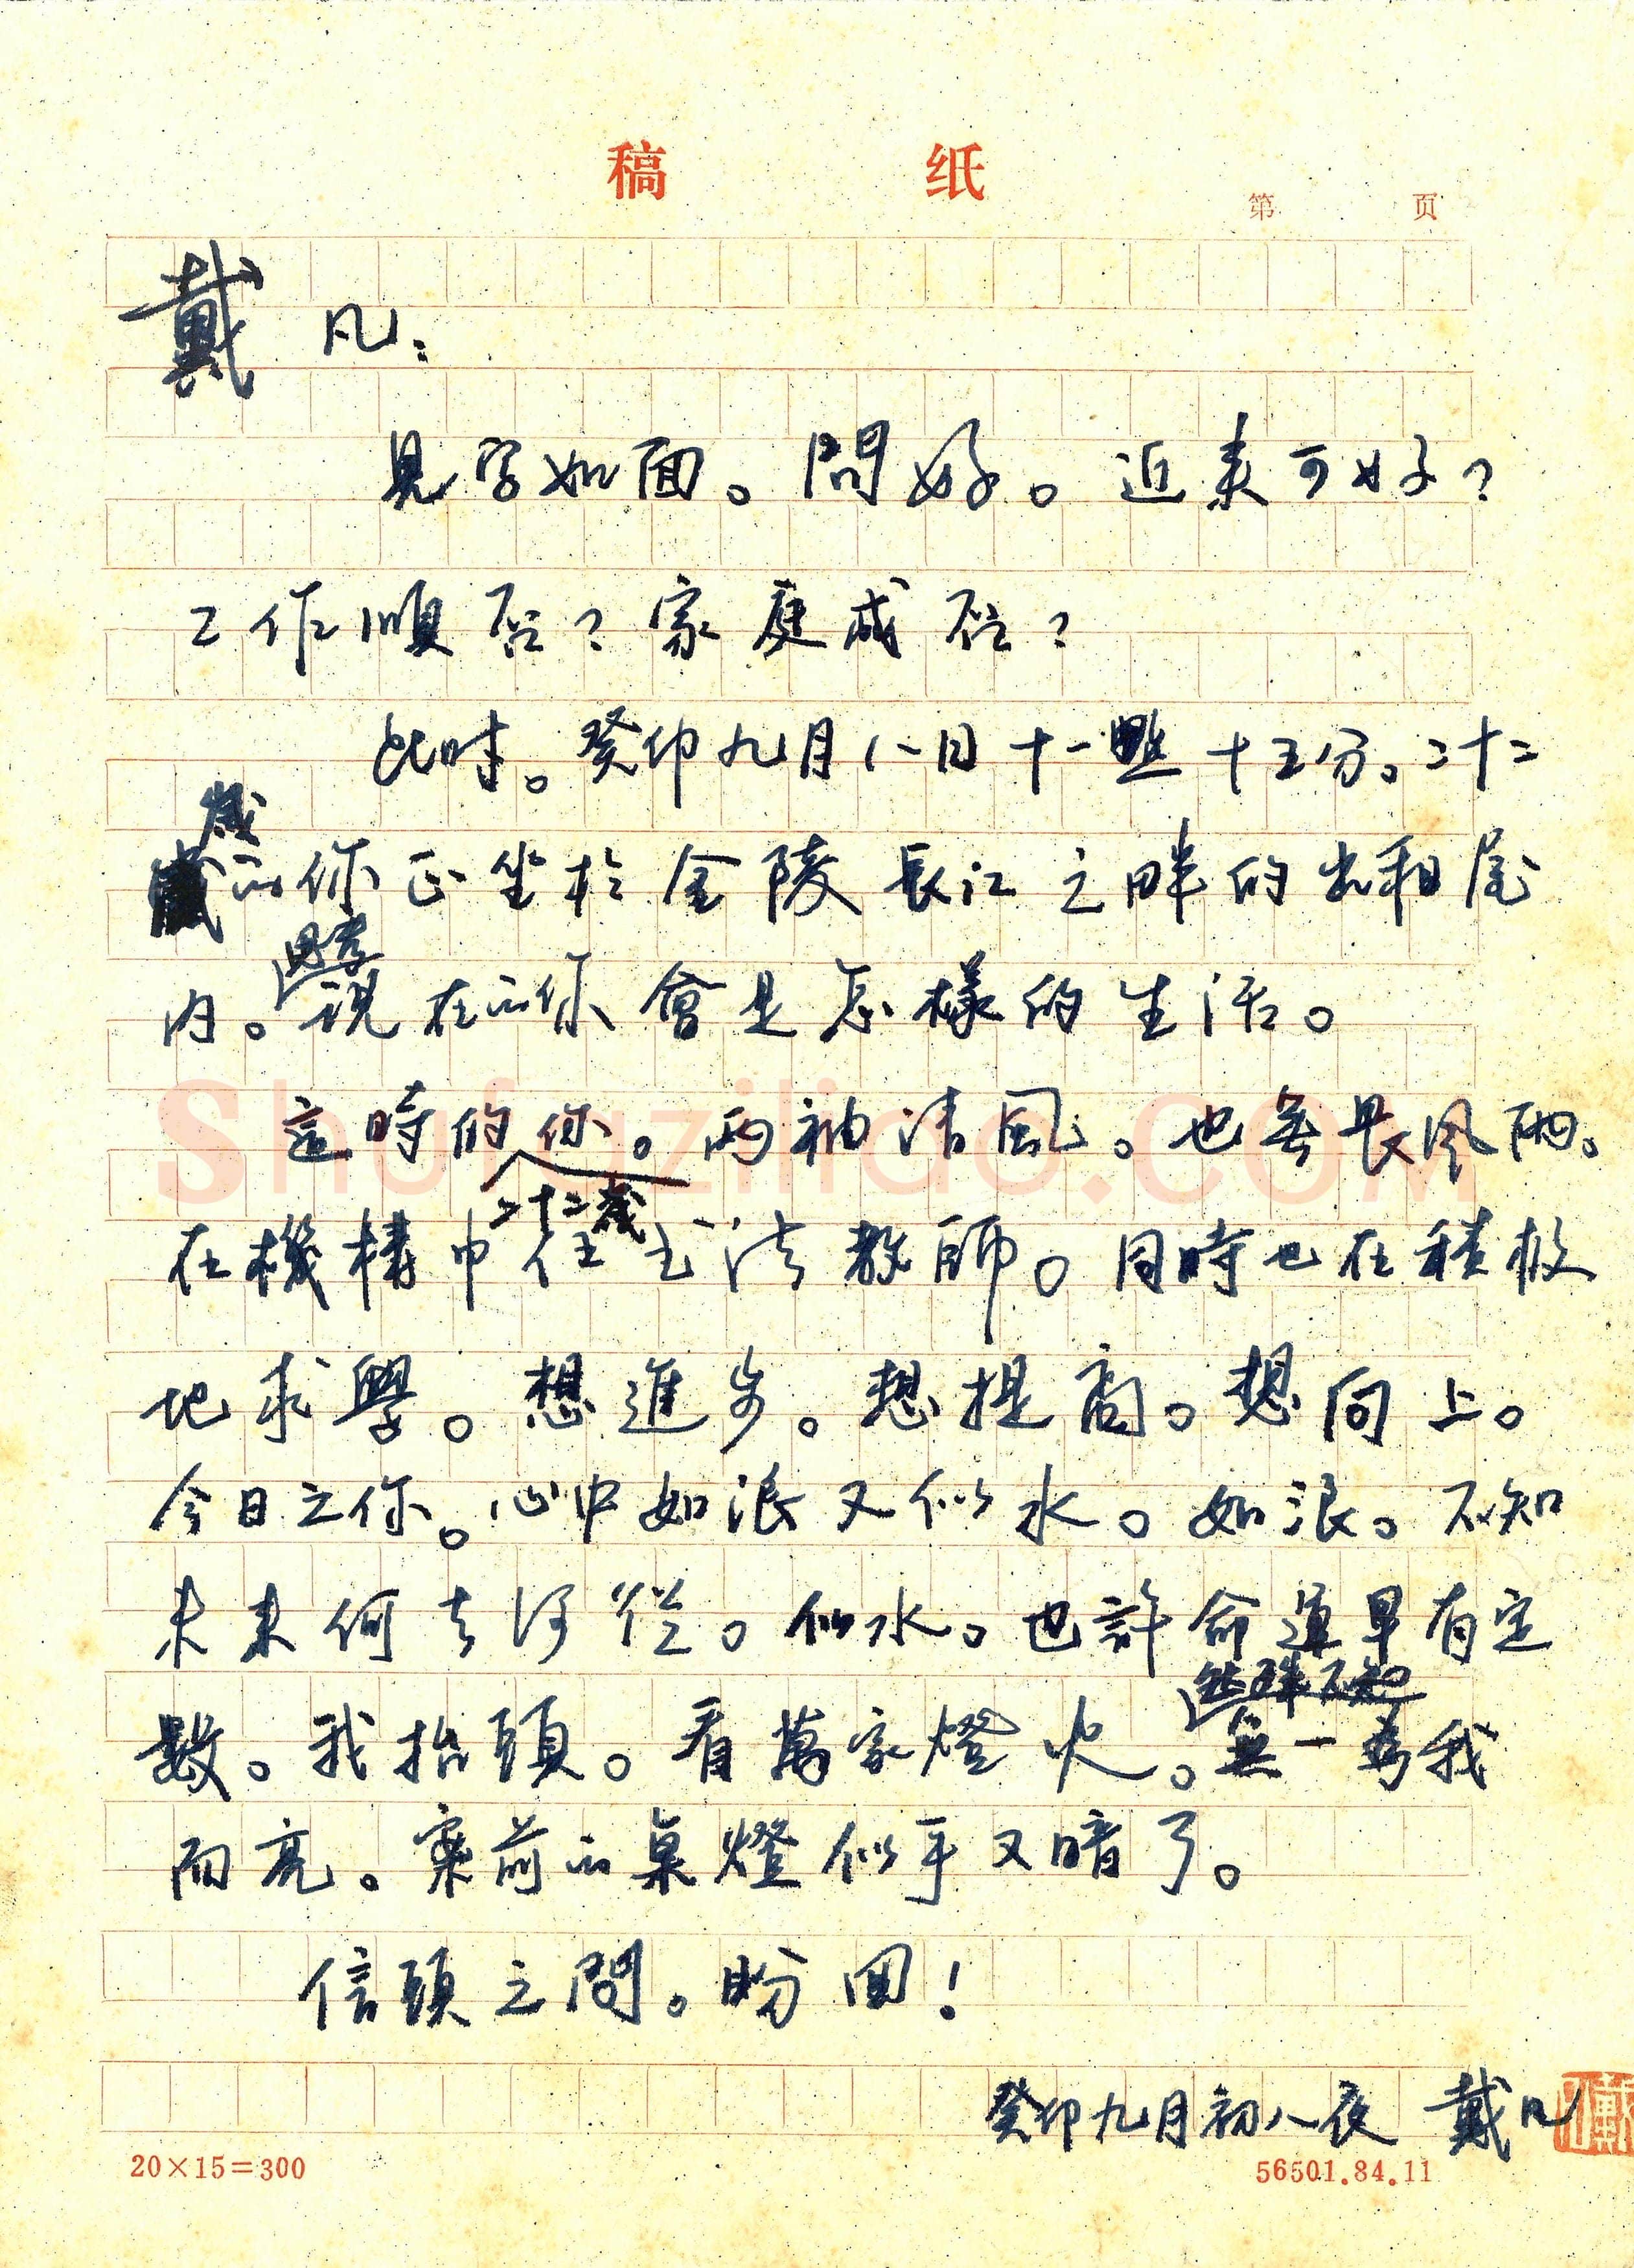 稿 纸
第 页
戴凡：
見字如面。問好。近来可好？
工作順否？家庭成否？
此时。癸卯九月八日十一點十五分。二十二
歲
的你正坐於金陵長江之畔的出租屋
思考
内。現在的你會是怎樣的生活。
這時的你。两袖清風。也無畏风雨。
二十二歲
在機構中任书法教師。同時也在積极
地求學。想進步。想提高。想向上。
今日之你。心中如浪又似水。如浪。不知
未来何去何從。似水。也許命運早有定
然殊不知
數。我抬頭。看萬家燈火。無一為我
而亮。案前的桌燈似乎又暗了。
信頭之問。盼回！
癸卯九月初八夜 戴凡
20×15=300 56501.84.11
Shufaziliao.com